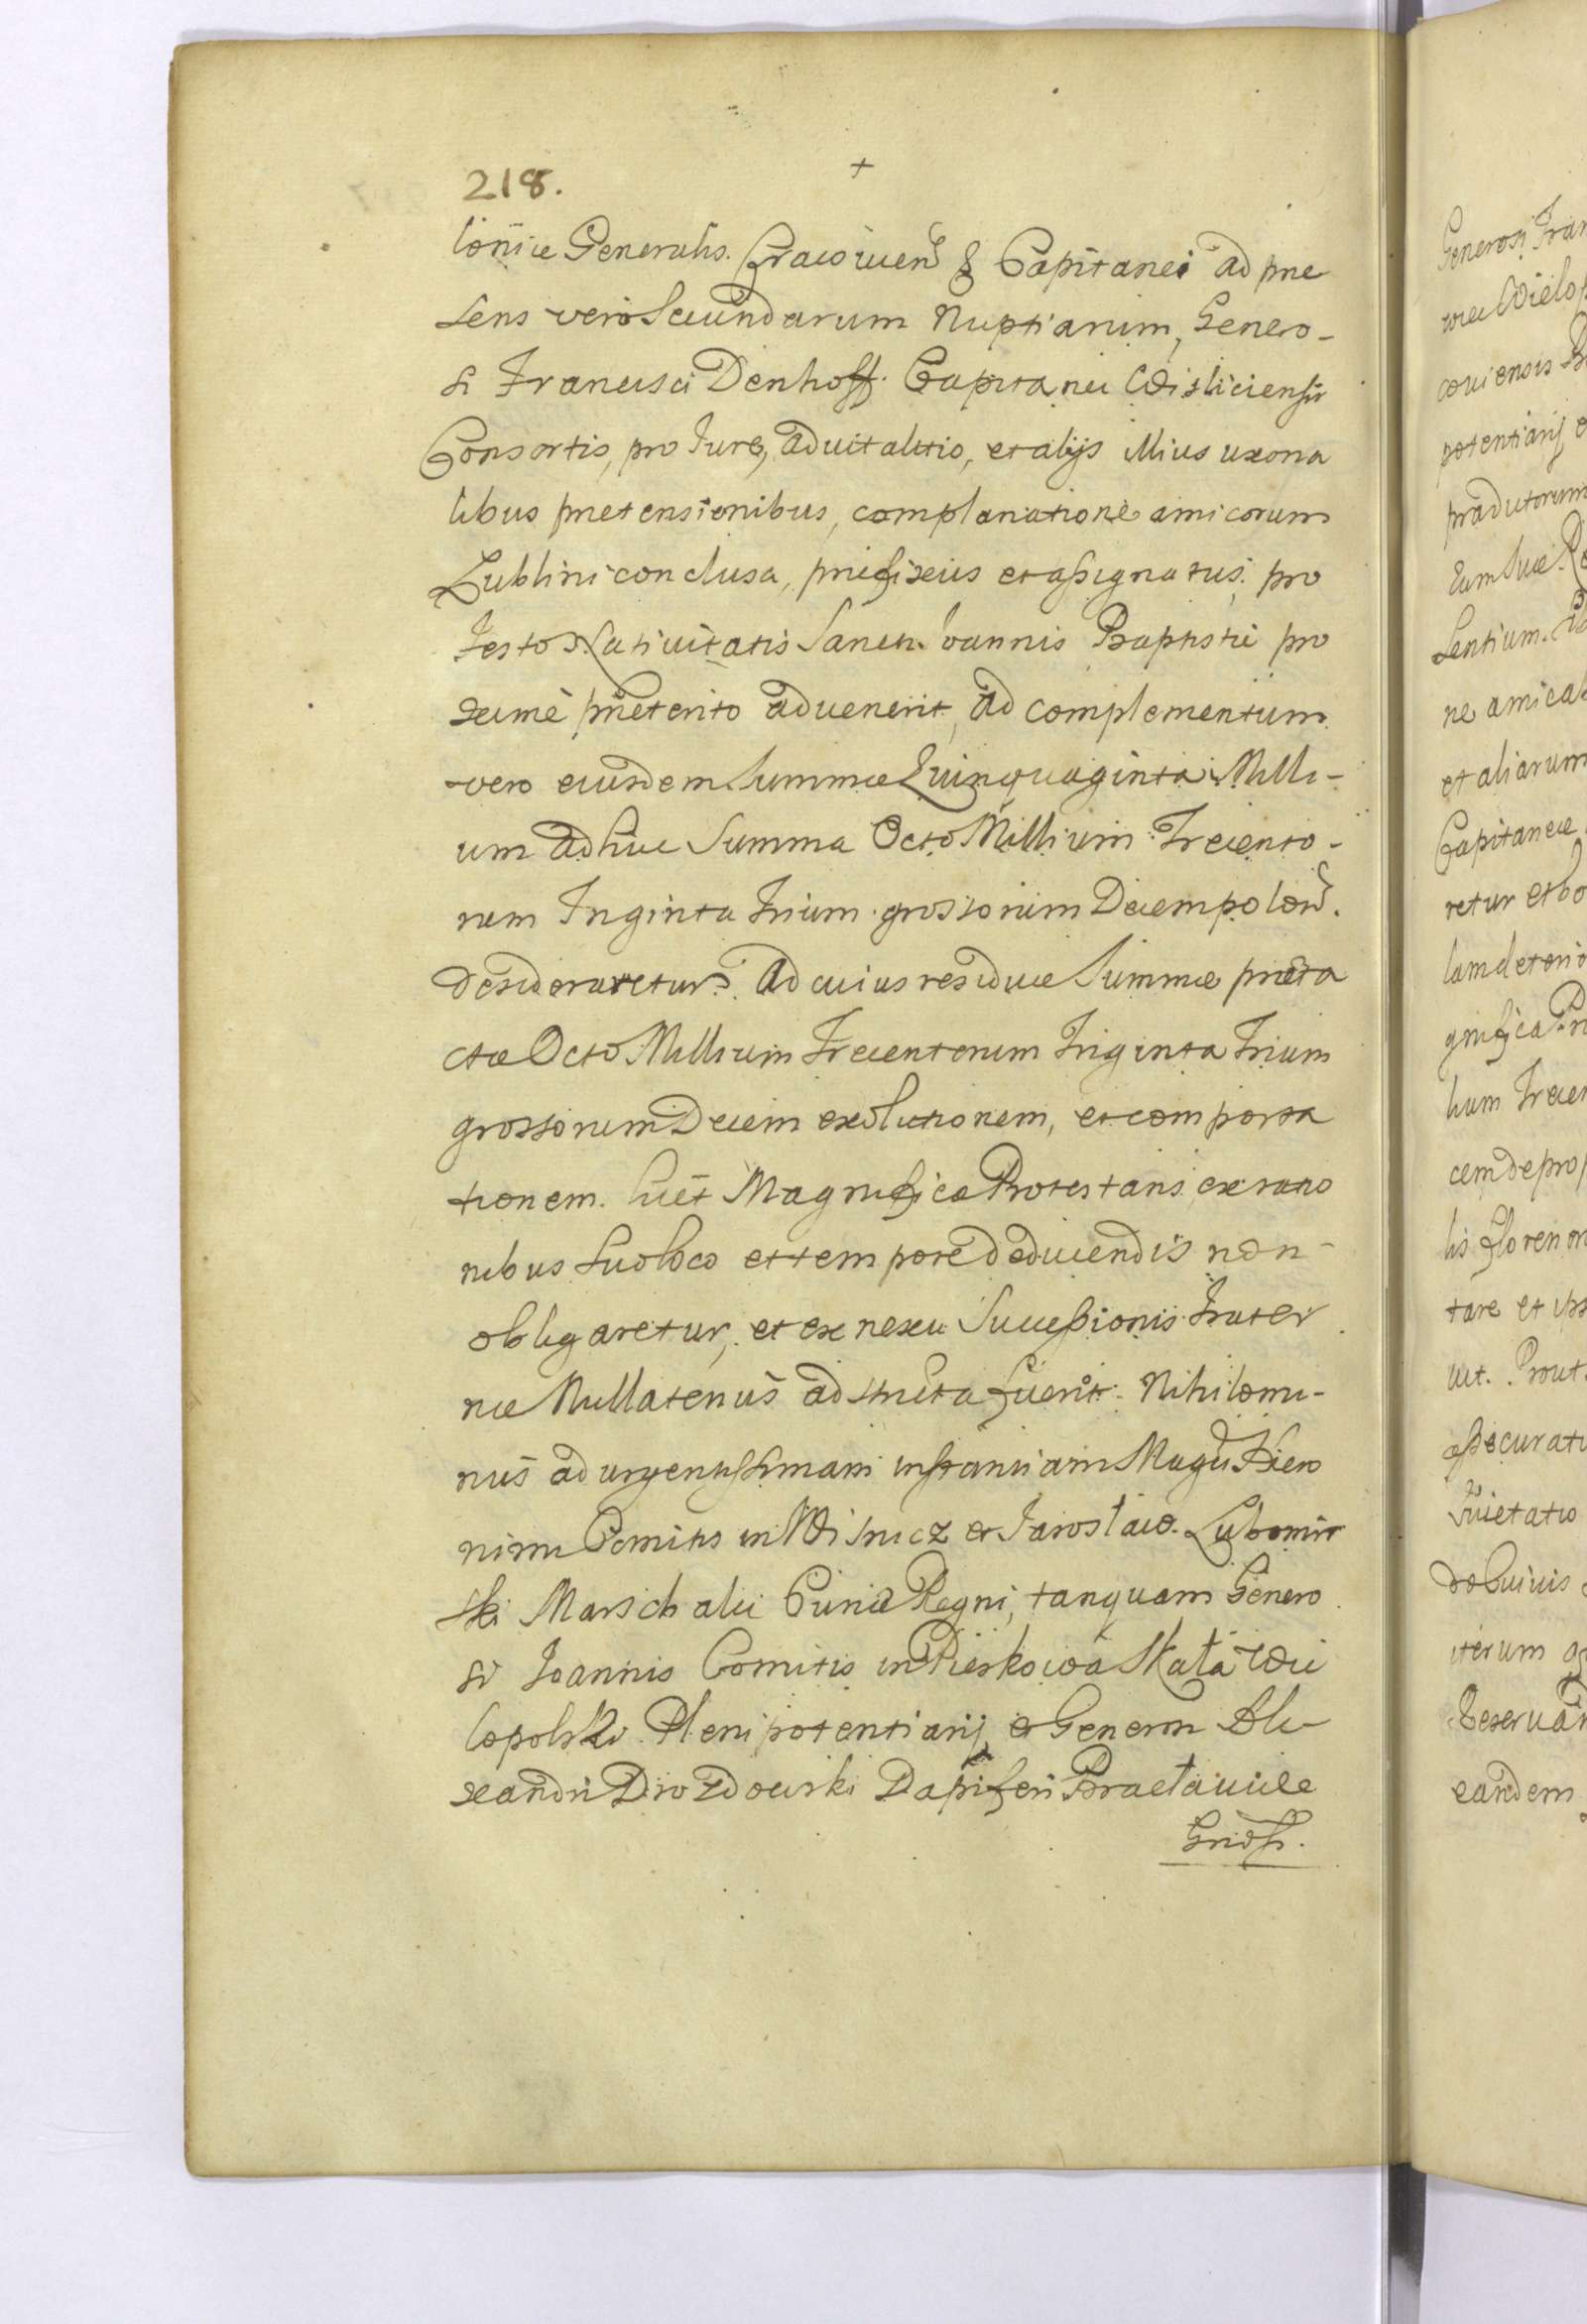 218.
+
loniæ Generalis. Cracouien̄ & Capitanei ad præ
sens vero Secundarum Nuptiarum, Genero-
si Francisci Denhoff. Capitanei Wisliciensis
Consortis, pro Jure, aduitalitio, et alijs illius uxoria
libus prætensionibus, complanatione amicorum
Lublini conclusa, præfixus et assignatus. pro
Festo Natiuitatis Sancti Joannis Baptistæ pro
xime præterito aduenerit, ad complementum
vero eiusdem Summæ Quinquaginta Milli-
um adhuc Summa Octo Millium Trecento-
rum Triginta Trium grossorum Decem polon̄.
desideraretur. Ad cuius residuæ Summæ præta
ctæ Octo Millium Trecentorum Triginta Trium
grossorum Decem exolutionem, et comporta
tionem. licet Magnifica Protestans ex ratio
nibus suo loco et tempore deducendis non-
obligaretur, et ex nexu Successionis Frater
næ Nullatenus adstricta fuerit. Nihilomi-
nus ad urgentissimam instantiam Magci Hiero
nimi Comitis in Wisnicz et Jaroslaw. Lubomir
ski Marschalci Curiæ Regni, tanquam Genero
si Joannis Comitis in Pieskowa Skała Wie
lopolski Plenipotentiarij, et Generosi Ale
xandri Drozdowski Dapiferi Braclauiæ
Gnosi.
Generosi Fran
ræ Wielop
couiensis
potentiarij e
prædictorum
Eum suæ
sentium.
ne amicab
et aliarum
Capitaneæ
retur et bo
lam deterio
gnifica Pr
lium Trecen
cem de prop
lis Floren
tare et ips
uit. Prout
assecurati
Quietatio
do
iterum
Reseruan
eandem